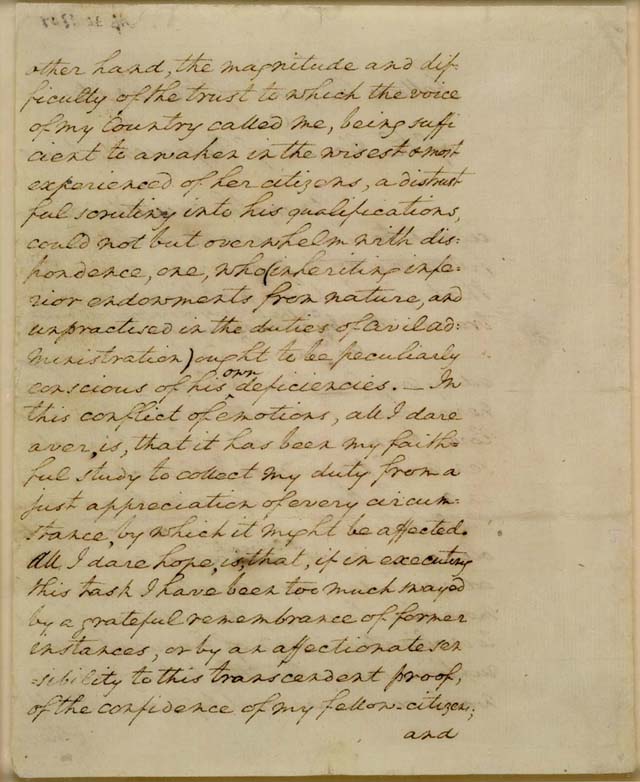 other hand, the magnitude and dif-
ficulty of the trust to which the voice
of my Country called me, being suffi
cient to awaken in the wisest & most
experienced of her citizens, a distrust
ful scrutiny into his qualifications,
could not but overwhelm with dis-
pondence, one, who (inheriting infe-
rior endowments from nature, and
unpractised in the duties of civil ad-
ministration) ought to be peculiarly
conscious of his own deficiencies. — In
this conflict of emotions, all I dare
aver, is, that it has been my faith-
ful study to collect my duty from a
just appreciation of every circum-
stance, by which it might be affected.
All I dare hope, is, that, if in executing
this task I have been too much swayed
by a grateful remembrance of former
instances, or by an affectionate sen
-sibility to this transcendent proof,
of the confidence of my fellow-citizens;
and